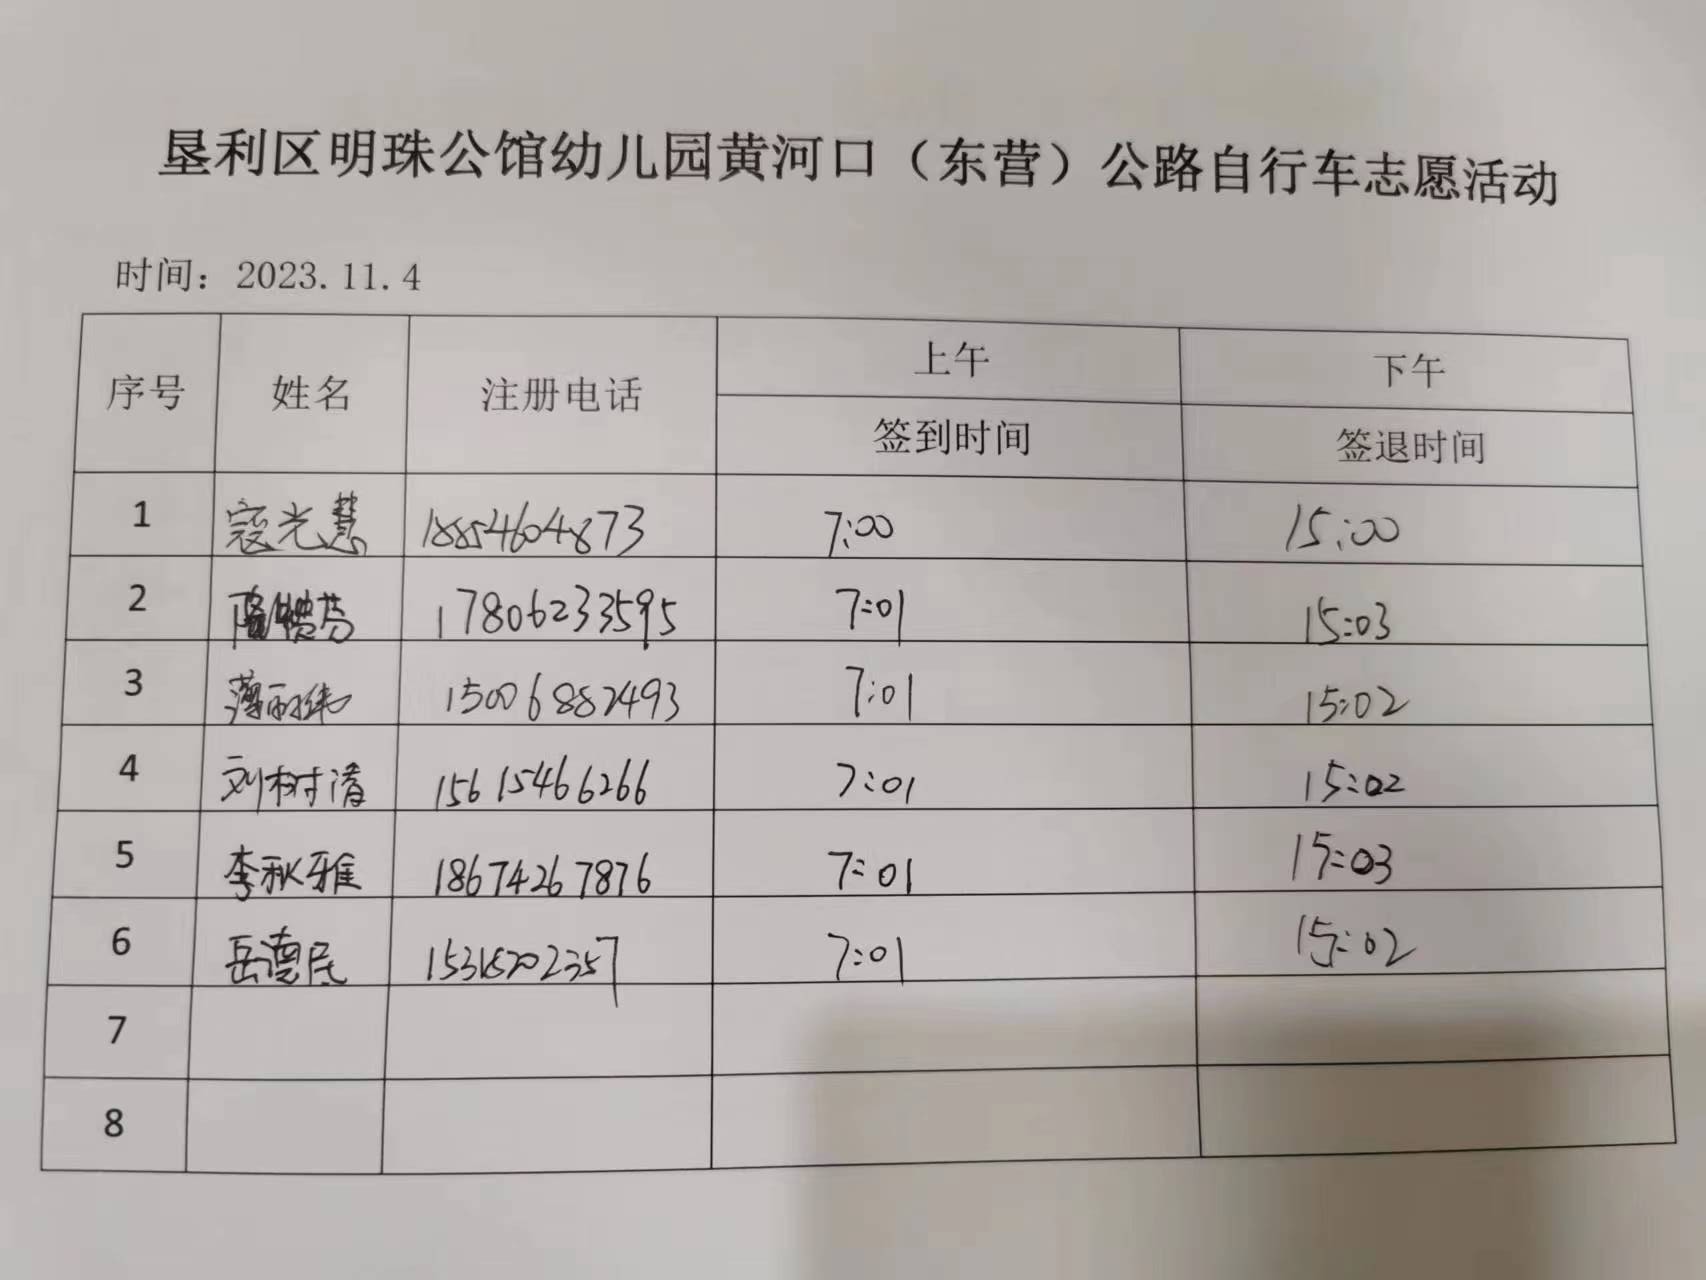 垦利区明珠公馆幼儿园黄河口（东营）公路自行车志愿活动
时间：2023.11.4
序号 姓名 注册电话 上午 下午
签到时间 签退时间
1 寇光慧 18854604873 7:00 15:00
2 17806233595 7:01 15:03
3 薄丽伟 15006882493 7:01 15:02
4 刘树清 15615466266 7:01 15:02
5 李秋雅 18674267876 7:01 15:03
6 岳德民 15315702357 7:01 15:02
7
8